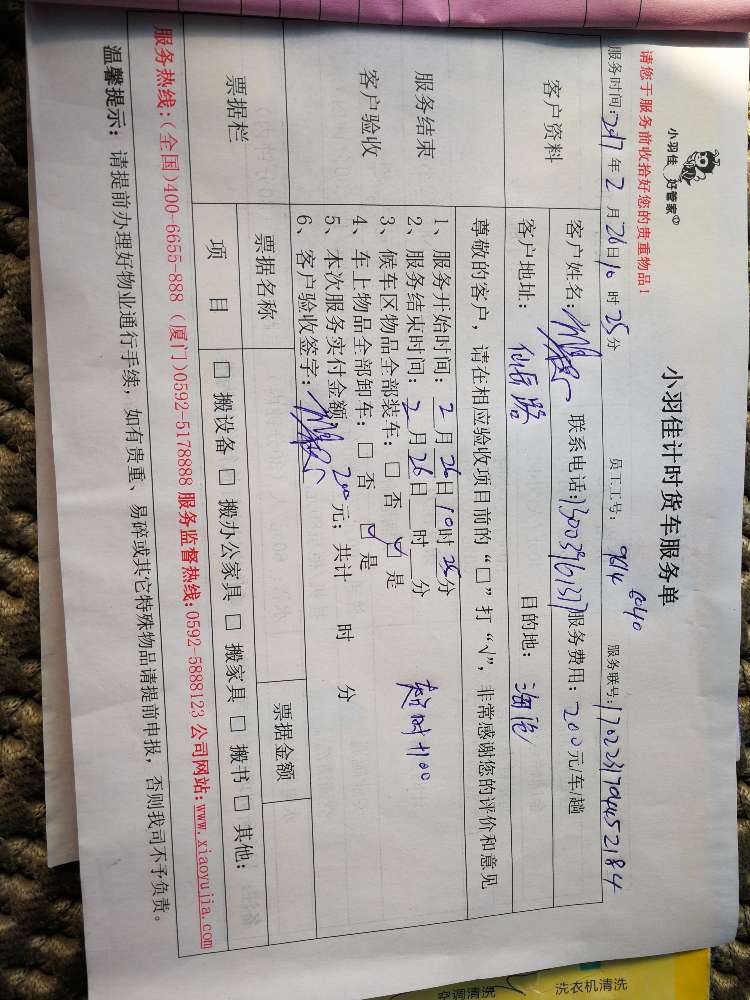 请您于服务前收拾好您的贵重物品！
小羽佳 好管家
小羽佳计时货车服务单
服务时间：2017年2月26日10时25分 员工工号：9614 6040 服务联号：1702231704452184
客户资料
客户姓名： 联系电话：13003961317 服务费用：200元/车/趟
客户地址：仙岳路 目的地：海沧
服务结束
客户验收
尊敬的客户，请在相应验收项目前的“□”打“√”，非常感谢您的评价和意见
1、服务开始时间：2月26日10时25分
2、服务结束时间：2月26日 时 分
3、候车区物品全部装车：□ 否 ☑ 是
4、车上物品全部卸车：□ 否 □ 是
5、本次服务实付金额200元；共计 时 分
6、客户验收签字：
超时100
票据栏
票据名称 票据金额
项 目 □ 搬设备 □ 搬办公家具 □ 搬家具 □ 搬书 □ 其他：
服务热线：(全国)400-6655-888 (厦门)0592-5178888 服务监督热线:0592-5888123 公司网站:www.xiaoyujia.com
温馨提示：请提前办理好物业通行手续，如有贵重、易碎或其它特殊物品请提前申报，否则我司不予负责。
洗衣机清洗
空调清洗